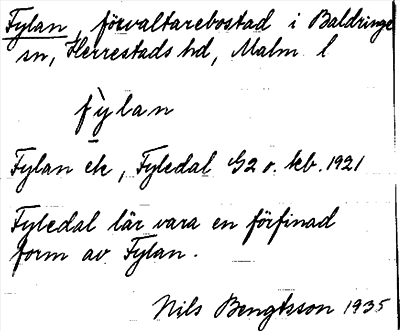 Fylan, förvaltarebostad i Baldringe
sn, Herrestads hd, Malm. l
fỳlan
Fylan ek, Fyledal G2 v. kb. 1921
Fyledal lär vara en förfinad
form av Fylan.
Nils Bengtsson 1935